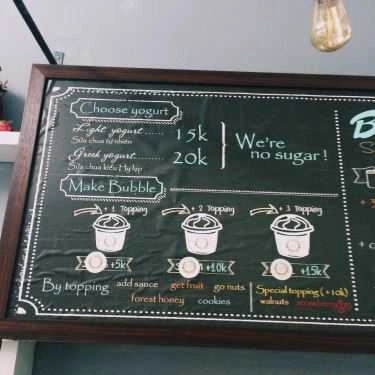 Choose yogurt
Light yogurt ...... 15k
Sữa chua tự nhiên
Greek yogurt ...... 20k
Sữa chua kiểu Hy Lạp
We're
no sugar!
Make Bubble
+ 1 Topping
+ 2 Topping
+ 3 Topping
+5k
+10k
+15k
By topping
add sauce get fruit go nuts
forest honey cookies
Special topping (+10k)
walnuts strawberry
B